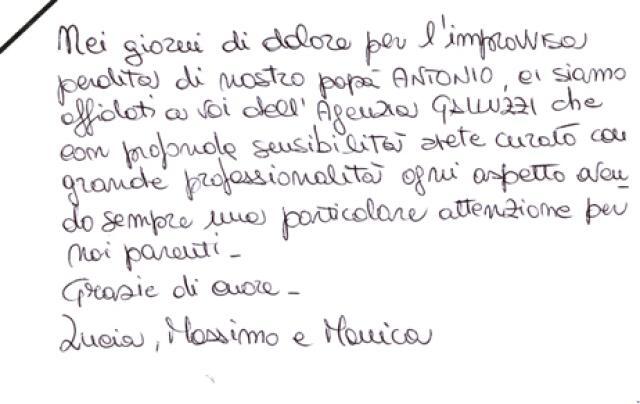 Nei giorni di dolore per l'improvvisa
perdita di nostro papà ANTONIO, ci siamo
affidati a voi dell'Agenzia GALLUZZI che
con profonda sensibilità avete curato con
grande professionalità ogni aspetto aven
do sempre una particolare attenzione per
noi parenti -
Grazie di cuore -
Lucia, Massimo e Monica